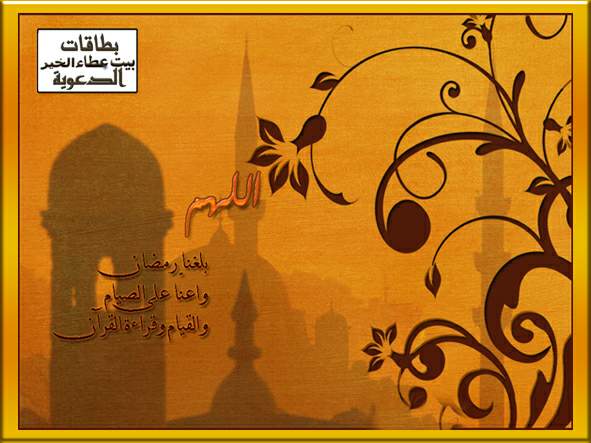 بطاقات
بيت عطاء الخير
الدعوية
اللهم
بلغنا رمضان
واعنا على الصيام
والقيام وقراءة القرآن